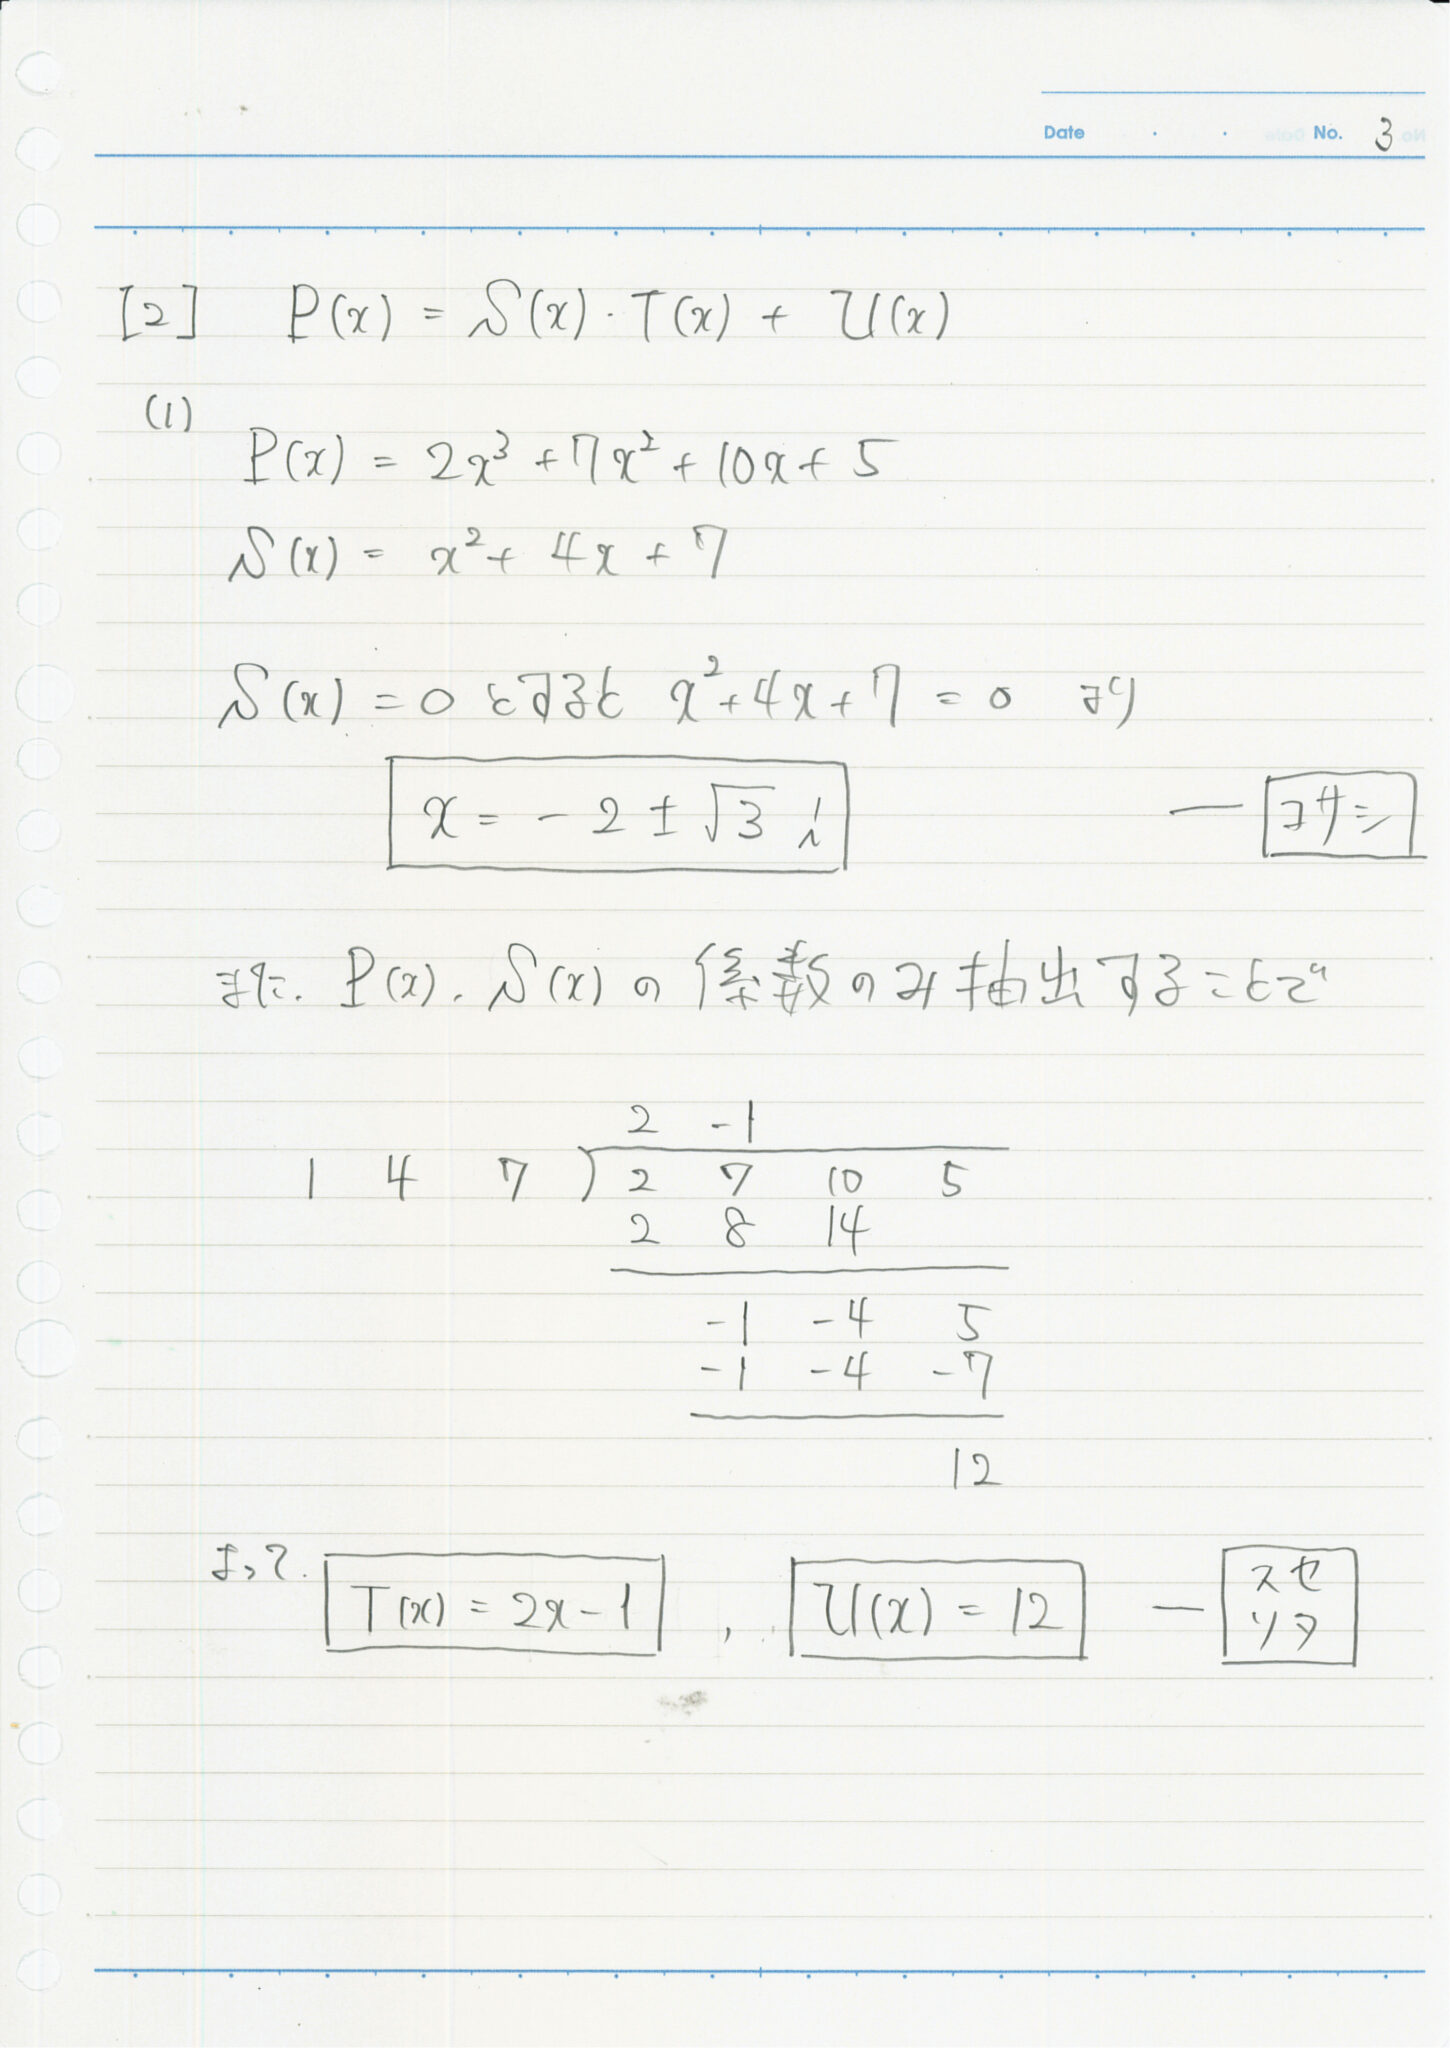 Date . . No. 3
[2] P(x) = S(x)・T(x) + U(x)
(1)
P(x) = 2x³ + 7x² + 10x + 5
S(x) = x² + 4x + 7
S(x) = 0 とすると x² + 4x + 7 = 0 より
x = -2 ± √3 i — コサシ
また、P(x)、S(x)の係数のみ抽出することで
2 -1
1 4 7 ) 2 7 10 5
2 8 14
-1 -4 5
-1 -4 -7
12
よって、 T(x) = 2x-1 , U(x) = 12 — スセ
ソタ